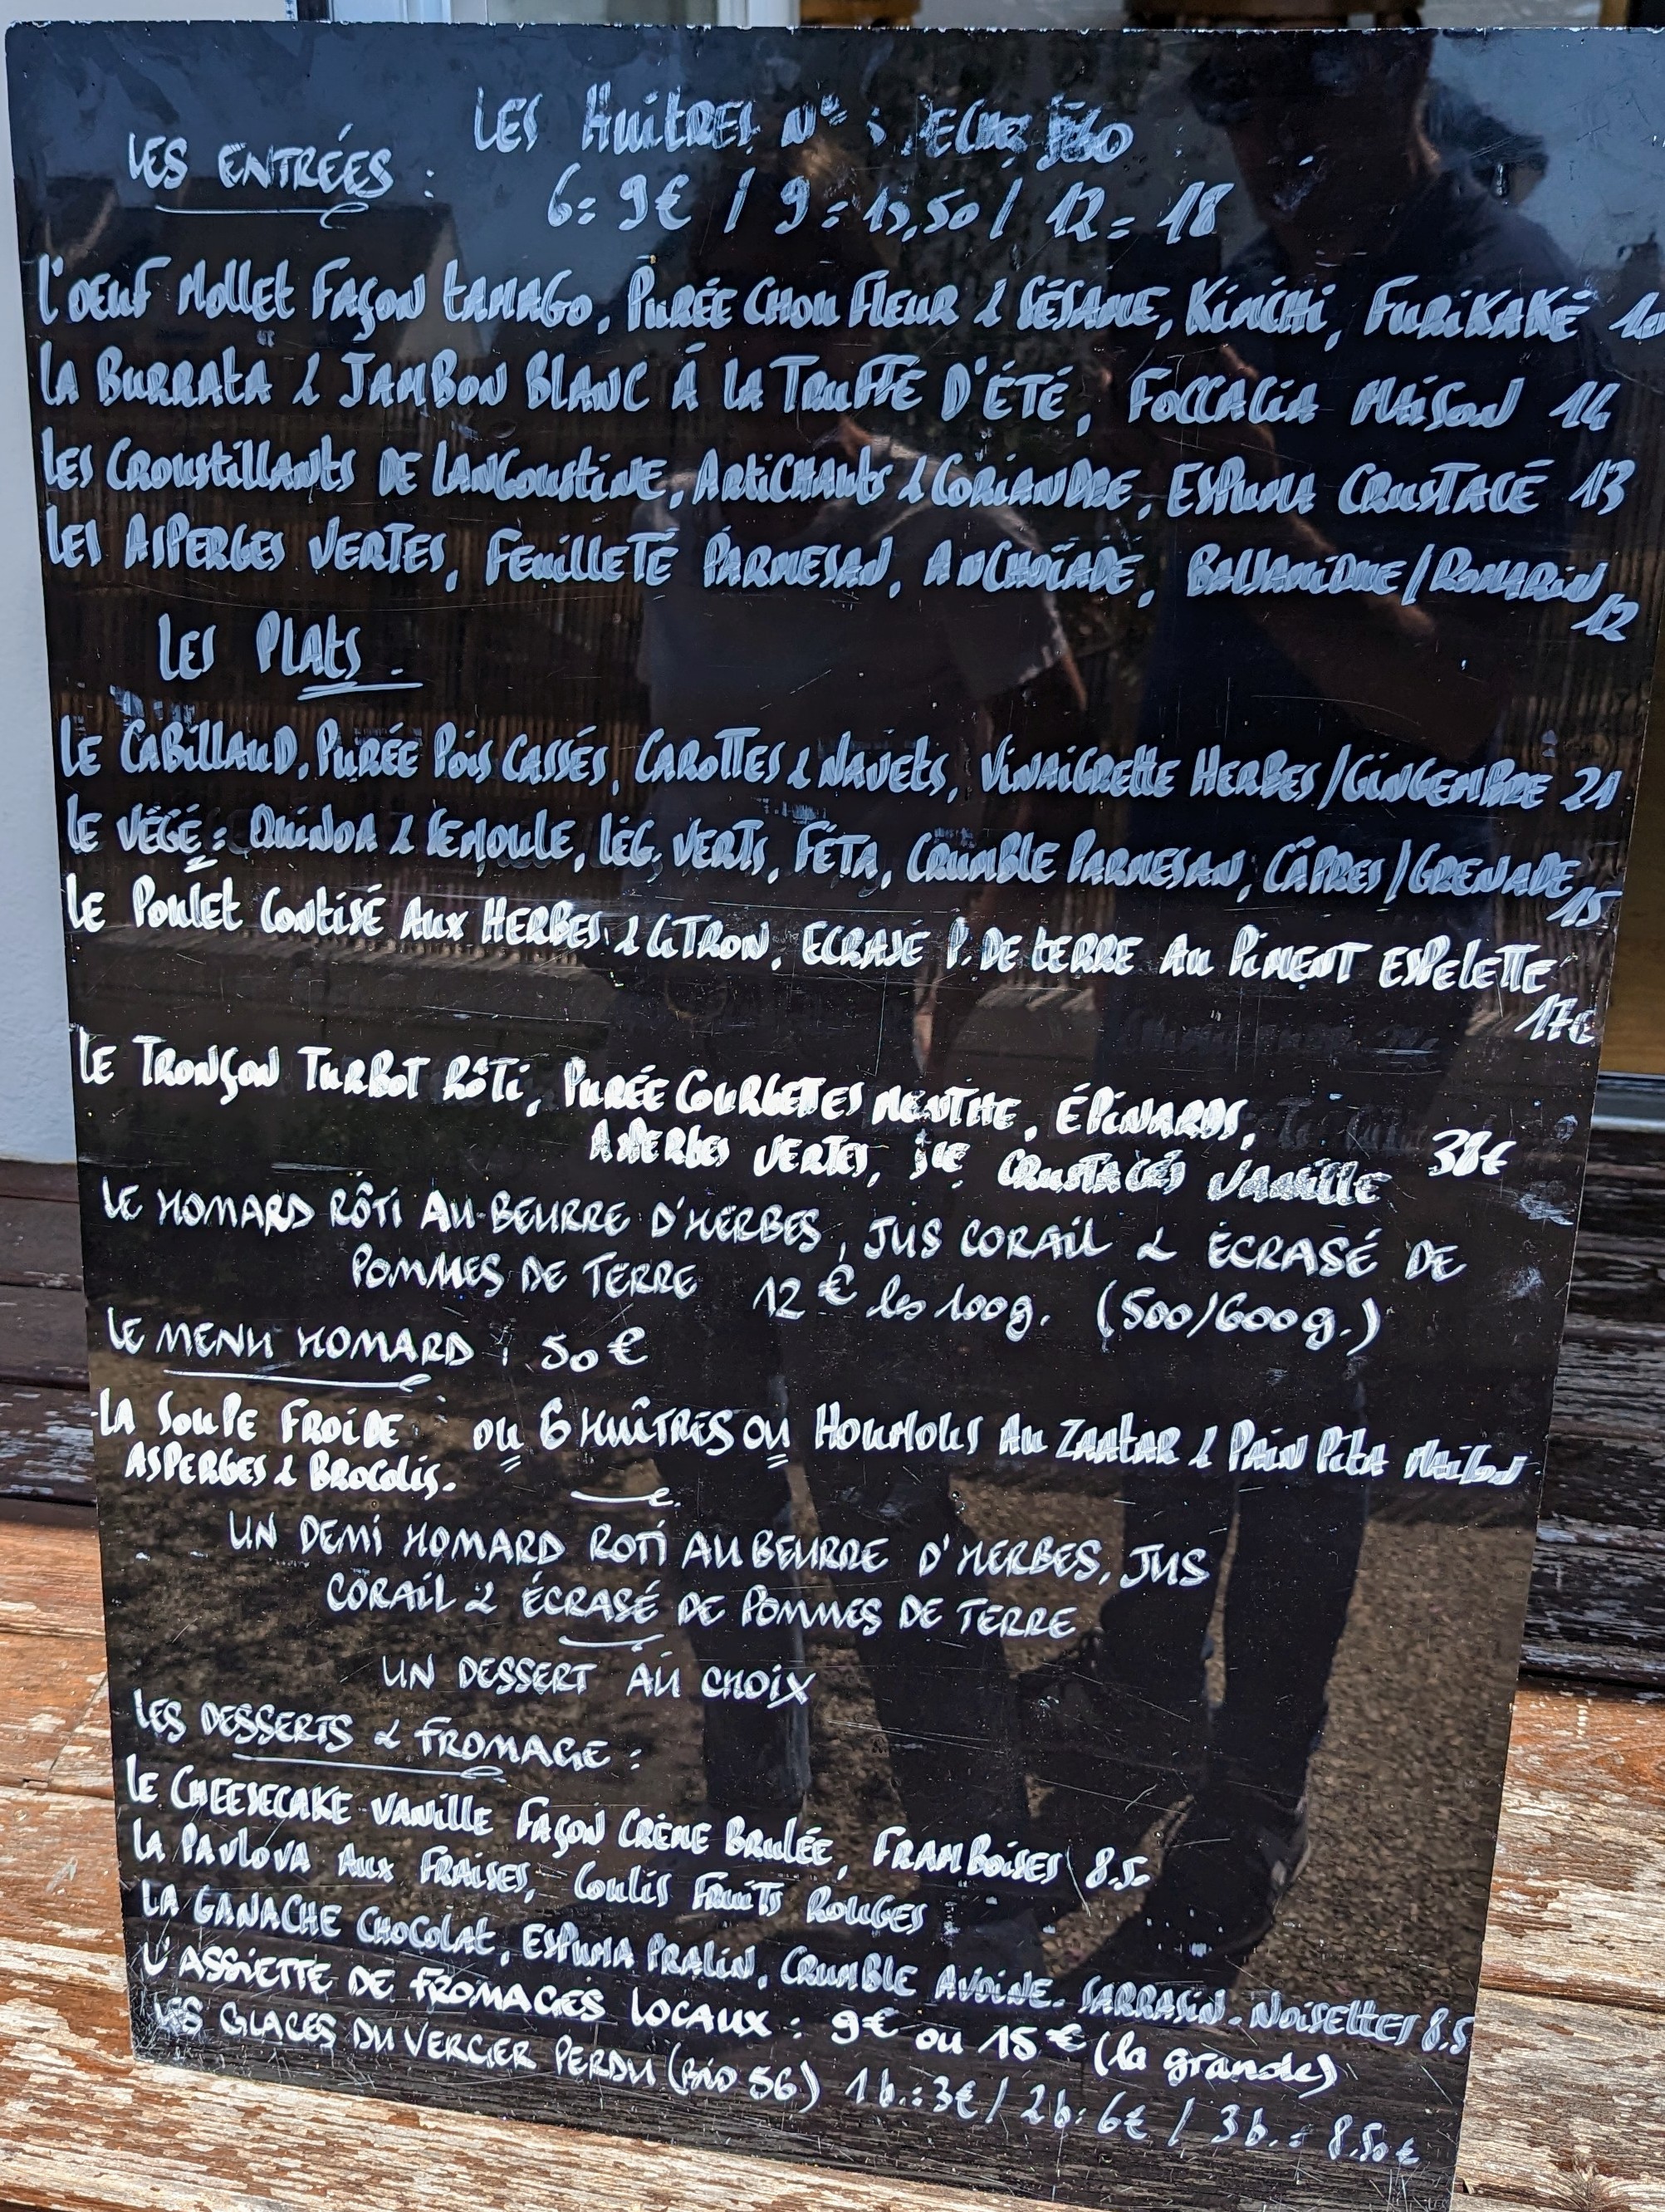 LES HUITRES N°
LES ENTRÉES :
6 = 9€ / 9 = 13,50 / 12 = 18
L'OEUF MOLLET FAÇON TAMAGO, PURÉE CHOU FLEUR & SÉSAME, KIMCHI, FURIKAKÉ 10
LA BURRATA & JAMBON BLANC À LA TRUFFE D'ÉTÉ, FOCCACIA MAISON 14
LES CROUSTILLANTS DE LANGOUSTINE, ARTICHAUTS & CORIANDRE, ESPUMA CRUSTACÉ 13
LES ASPERGES VERTES, FEUILLETÉ PARMESAN, ANCHOÏADE, BALSAMIQUE/ROMARIN 12
LES PLATS.
LE CABILLAUD, PURÉE POIS CASSÉS, CAROTTES & NAVETS, VINAIGRETTE HERBES/GINGEMBRE 21
LE VÉGÉ : QUINOA & SEMOULE, LÉG. VERTS, FÉTA, CRUMBLE PARMESAN, CÂPRES/GRENADE 15
LE POULET CONTISÉ AUX HERBES & CITRON, ECRASÉ P. DE TERRE AU PIMENT ESPELETTE
17€
LE TRONÇON TURBOT RÔTI, PURÉE COURGETTES MENTHE, ÉPINARDS,
ASPERGES VERTES, SCE CRUSTACÉS VANILLE 38€
LE HOMARD RÔTI AU BEURRE D'HERBES, JUS CORAIL & ÉCRASÉ DE
POMMES DE TERRE 12€ les 100g. (500/600g.)
LE MENU HOMARD : 50€
-LA SOUPE FROIDE ou 6 HUÎTRES OU HOUMOUS AU ZAATAR & PAIN PITA MAISON
ASPERGES & BROCOLIS.
UN DEMI HOMARD ROTI AU BEURRE D'HERBES, JUS
CORAIL & ÉCRASÉ DE POMMES DE TERRE
UN DESSERT AU CHOIX
LES DESSERTS & FROMAGE :
LE CHEESECAKE VANILLE FAÇON CRÈME BRULÉE, FRAMBOISES 8.50
LA PAVLOVA AUX FRAISES, COULIS FRUITS ROUGES
LA GANACHE CHOCOLAT, ESPUMA PRALIN, CRUMBLE AVOINE-SARRASIN-NOISETTES 8.5
L'ASSIETTE DE FROMAGES LOCAUX : 9€ ou 15€ (la grande)
LES GLACES DU VERGER PERDU (BIO 56) 1b.: 3€ / 2b: 6€ / 3b. = 8.50€